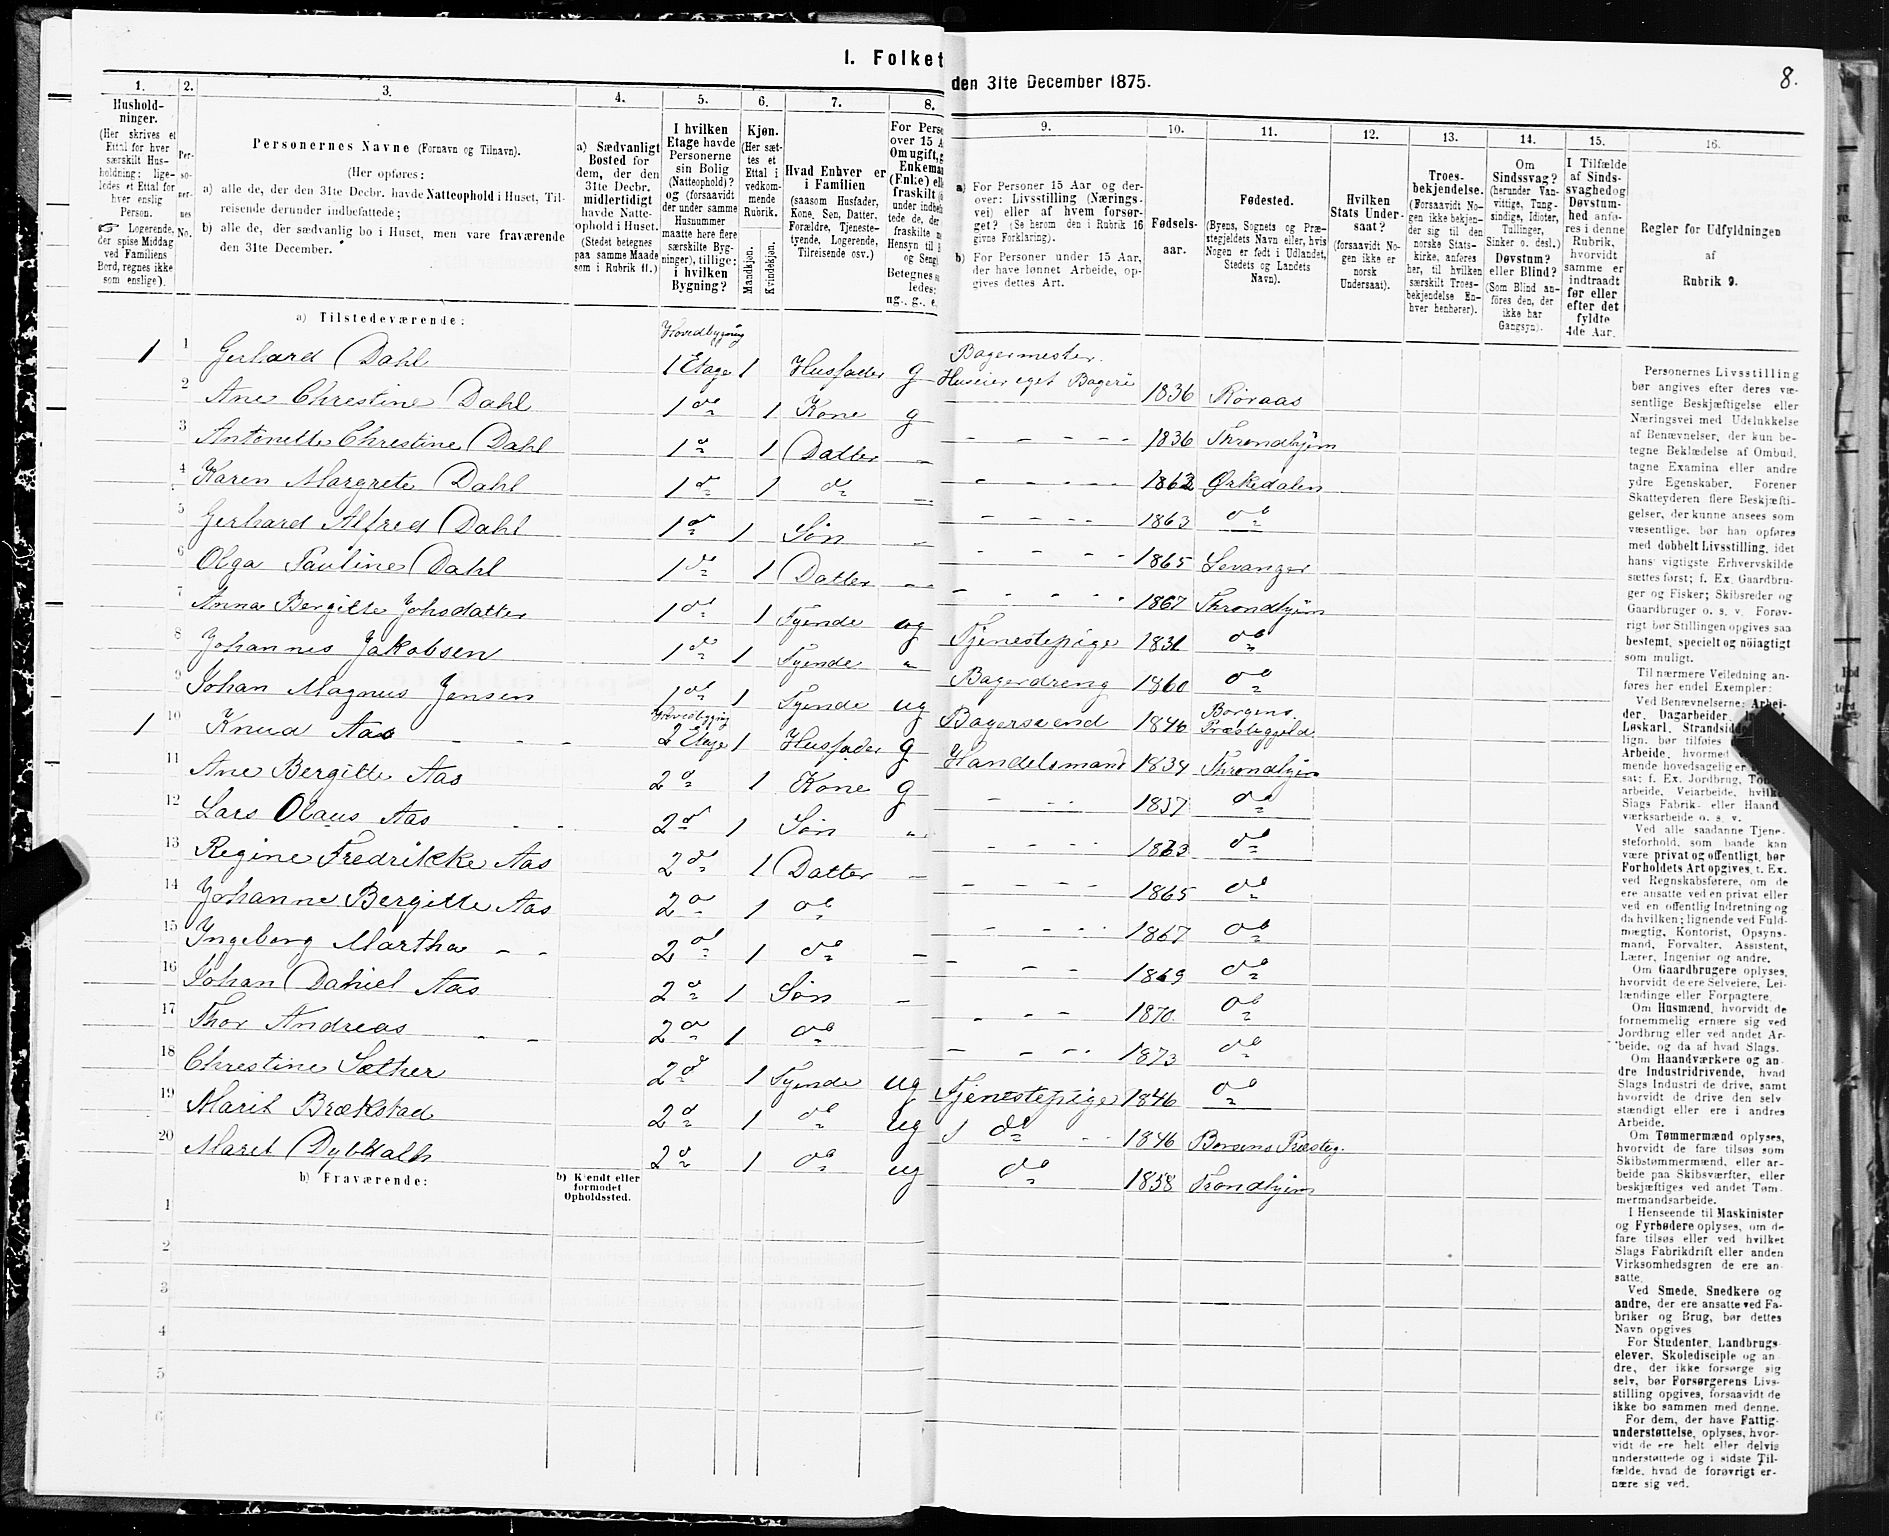 I. Folket
den 31te December 1875.
8.
1.
2.
3.
4.
5.
6.
7.
8.
9.
10.
11.
12.
13.
14.
15.
16.
Hushold-
ninger.
(Her skrives et
Ettal for hver
særskilt Hus-
holdning; lige-
ledes et Ettal for
hver enslig
Person.
☞ Logerende,
der spise Middag
ved Familiens
Bord, regnes ikke
som enslige).
Per-
so-
ner-
nes
No.
Personernes Navne (Fornavn og Tilnavn).
(Her opføres:
a) alle de, der den 31te Decbr. havde Natteophold i Huset, Til-
reisende derunder indbefattede;
b) alle de, der sædvanlig bo i Huset, men vare fraværende
den 31te December.
a) Sædvanligt
Bosted for
dem, der den
31te Decbr.
midlertidigt
havde Natte-
ophold i Huset.
(Stedet betegnes
paa samme Maade
som i Rubrik 11.)
I hvilken
Etage havde
Personerne
sin Bolig
(Natteophold)?
og (forsaavidt
der under samme
Husnummer
maatte høre flere
særskilte Byg-
ninger), tillige:
i hvilken
Bygning?
Kjøn.
(Her sæt-
tes et
Ettal i
vedkom-
mende
Rubrik.
Mandkjøn.
Kvindekjøn.
Hvad Enhver er
i Familien
(saasom Husfader,
Kone, Søn, Datter,
Forældre, Tjeneste-
tyende, Logerende,
Tilreisende osv.)
For Perso
over 15 A
Om ugift, g
Enkeman
(Enke) ell
fraskilt
under indbe
tede de, de
fraskilte
Hensyn til
og Seng
Betegnes s
ledes:
ug., g., e.
a) For Personer 15 Aar og der-
over: Livsstilling (Nærings-
vei) eller af hvem forsør-
get? (Se herom den i Rubrik 16
givne Forklaring).
b) For Personer under 15 Aar,
der have lønnet Arbeide, op-
gives dettes Art.
Fødsels-
aar.
Fødested.
(Byens, Sognets og Præ-
stegjeldets Navn eller, hvis
Nogen er født i Udlandet,
Stedets og Landets
Navn).
Hvilken
Stats Under-
saat?
(forsaavidt No-
gen ikke er
norsk
Undersaat).
Troes-
bekjendelse.
(Forsaavidt No-
gen ikke bekjen-
der sig til den
norske Stats-
kirke, anføres
her, til hvilken
særskilt Troes-
bekjendelse En-
hver henhører).
Om
Sindssvag?
(herunder Van-
vittige, Tung-
sindige, Idioter,
Tullinger,
Sinker o. desl.)
Døvstum?
eller Blind?
(Som Blind an-
føres den, der
ikke har
Gangsyn).
I Tilfælde
af Sinds-
svaghed og
Døvstum-
hed anfø-
res i denne
Rubrik,
hvorvidt
samme er
indtraadt
før eller
efter det
fyldte
4de Aar.
Regler for Udfyldningen
af
Rubrik 9.
a) Tilstedeværende:
1 1 Gerhard Dahl Hovedbygnig 1 Etage 1 Husfader g Bagermester. Huseier eget Bageri 1836 Røraas
2 Ane Chrestine Dahl 1 do 1 Kone g - - - - 1836 Throndhjem
3 Antonette Chrestine Dahl 1 do 1 Datter - - - - 1862 Ørkedalen
4 Karen Margrete Dahl 1 do 1 do - - - - 1863 do
5 Gerhard Alfred Dahl 1 do 1 Søn - - - - 1865 Levanger
6 Olga Pauline Dahl 1 do 1 Datter - - - - 1867 Throndhjem
7 Anna Bergitte Johsdatter 1 do 1 Tyende ug Tjenestepige 1831 do
8 Johannes Jakobsen 1 do 1 Tyende " Bagerdreng 1860 do
9 Johan Magnus Jensen 1 do 1 Tyende ug Bagersvend 1846 Borgens Præstegjeld
1 10 Knud Aas Hovedbygnig 2 Etage 1 Husfader g Handelsmand 1834 Throndhjem
11 Ane Bergitte Aas 2 do 1 Kone g - - - 1837 do
12 Lars Olaus Aas 2 do 1 Søn " - - - - 1863 do
13 Regine Fredrikke Aas 2 do 1 Datter - - - - 1865 do
14 Johanne Bergitte Aas 2 do 1 do - - - - 1867 do
15 Ingeborg Martha - - 2 do 1 do - - - - 1869 do
16 Johan Daniel Aas 2 do 1 Søn - - - - 1870 do
17 Thor Andreas - - 2 do 1 do - - - - 1873 do
18 Chrestine Sæther 2 do 1 Tyende ug Tjenestepige 1846 do
19 Marit Brækstad 2 do 1 do ug do 1846 Borsens Præsteg.
20 Marit Dybdahl 2 do 1 do ug do 1858 Trondhjem
b) Fraværende:
b) Kjendt eller
formodet
Opholdssted.
1
2
3
4
5
6
Personernes Livsstilling
bør angives efter deres væ-
sentlige Beskjæftigelse eller
Næringsvei med Udelukkelse
af Benævnelser, der kun be-
tegne Beklædelse af Ombud,
tagne Examina eller andre
ydre Egenskaber. Forener
Skatteyderen flere Beskjæfti-
gelser, der kunne ansees som
væsentlige, bør han opføres
med dobbelt Livsstilling, idet
hans vigtigste Erhvervskilde
sættes først; f. Ex. Gaardbru-
ger og Fisker; Skibsreder og
Gaardbruger o. s. v. Forøv-
rigt bør Stillingen opgives saa
bestemt, specielt og nöiagtigt
som muligt.
Til nærmere Veiledning an-
føres her endel Exempler:
Ved Benævnelserne: Arbei-
der, Dagarbeider,
Løskarl, Strandsidd
lign. bør tilføies
Arbeide, hvormed
mende hovedsagelig er
sat; f. Ex. Jordbrug, Tøm
arbeide, Veiarbeide, hvilke
Slags Fabrik- eller Haand
værksarbeide o. s. v.
Ved alle saadanne Tjene-
steforhold, som baade kan
være privat og offentligt, bør
Forholdets Art opgives, t. Ex.
ved Regnskabsførere, om de
ere ansatte ved en privat eller
ved en offentlig Indretning og
da hvilken; lignende ved Fuld-
mægtig, Kontorist, Opsyns-
mand, Forvalter, Assistent,
Lærer, Ingeniør og andre.
Om Gaardbrugere oplyses,
hvorvidt de ere Selveiere, Lei-
lændinge eller Forpagtere.
Om Husmænd, hvorvidt de
fornemmelig ernære sig ved
Jordbrug eller ved andet Ar-
beide, og da af hvad Slags.
Om Haandværkere og an-
dre Industridrivende, hvad
Slags Industri de drive, samt
hvorvidt de drive den selv
stændigt eller ere i andres
Arbeide.
Om Tømmermænd oplyses,
hvorvidt de fare tilsøs som
Skibstømmermænd, eller ar-
beide paa Skibsværfter, eller
beskjæftiges ved andet Tøm-
mermandsarbeide.
I Henseende til Maskinister
og Fyrbødere oplyses, om de
fare tilsøs eller ved hvilket
Slags Fabrikdrift eller anden
Virksomhedsgren de ere an-
satte.
Ved Smede, Snedkere og
andre, der ere ansatte ved Fa-
briker og Brug, bør dettes
Navn opgives
For Studenter, Landbrugs-
elever, Skoledisciple og an-
dre, der ikke forsørge sig
selv, bør Forsørgerens Livs-
stilling opgives, forsaavidt de
ikke bo sammen med denne.
For dem, der have Fattig-
understøttelse, oplyses, hvor-
vidt de ere helt eller delvis
understøttede og i sidste Til-
fælde, hvad de forøvrigt er-
nære sig ved.